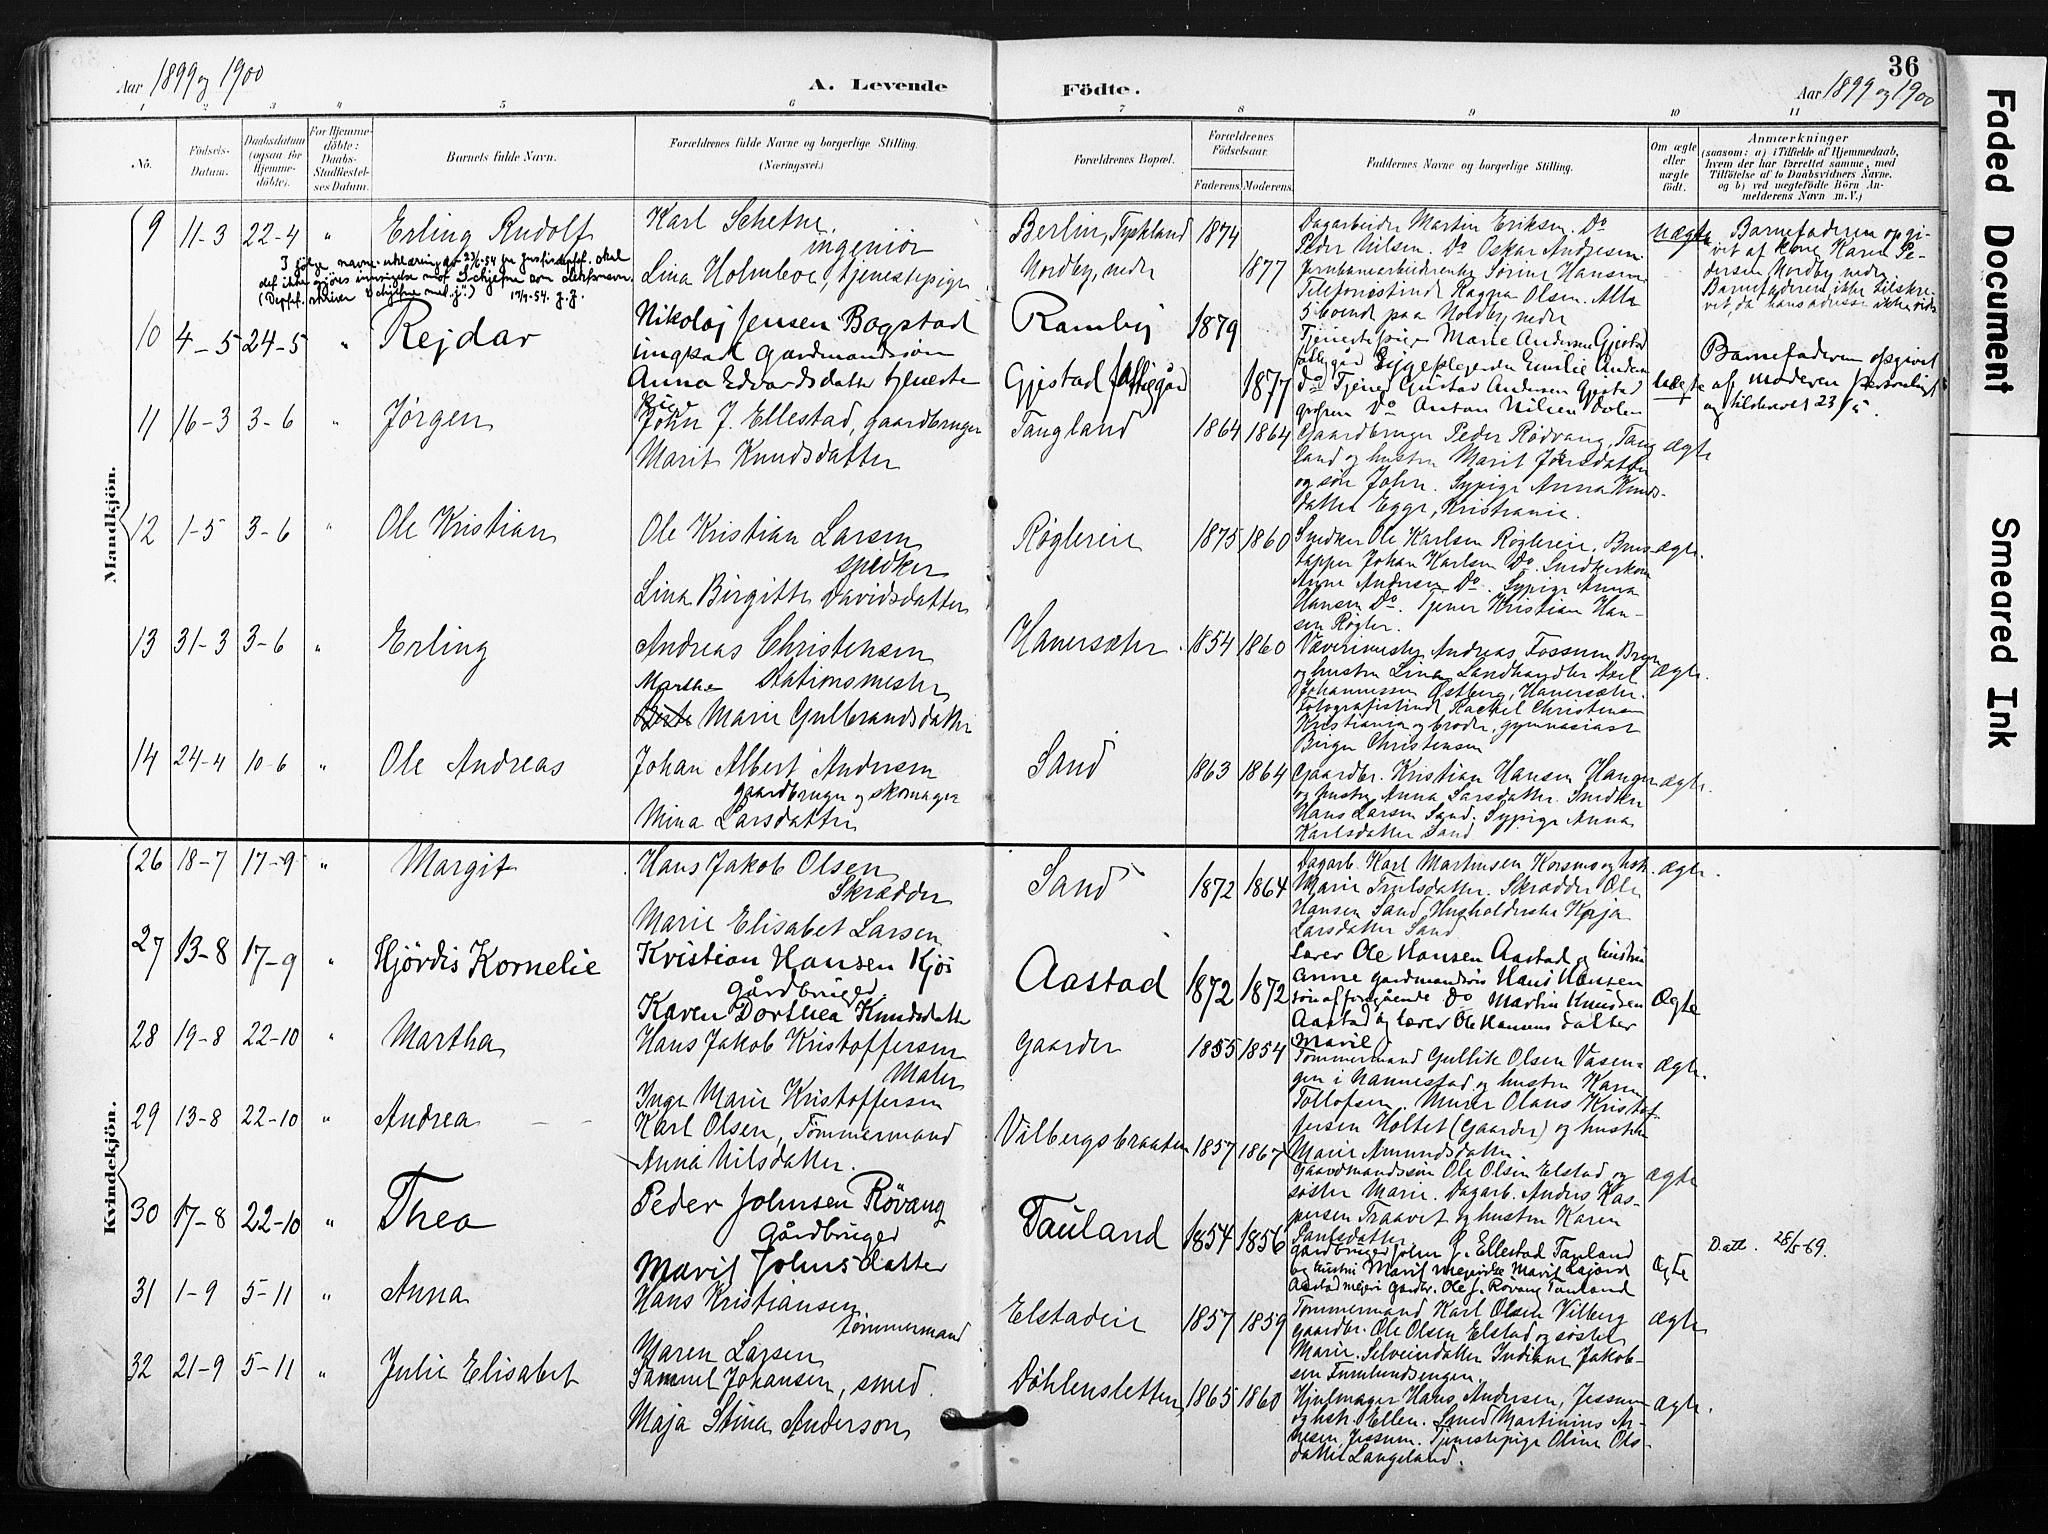 Aar 1899 og 1900
A. Levende
Födte.
36
Aar 1899 og 1900
1 2 3 4 5 6 7 8 9 10 11
No.
Födsels-Datum.
Daabsdatum (ogsaa for Hjemmedöbte).
For Hjemmedöbte: Daabs-Stadfæstelses Datum.
Barnets fulde Navn.
Forældrenes fulde Navne og borgerlige Stilling. (Næringsvei.)
Forældrenes Bopæl.
Forældrenes Födselsaar.
Faderens. Moderens.
Faddernes Navne og borgerlige Stilling.
Om ægte eller uægte født.
Anmærkninger
(saasom: a) i Tilfælde af Hjemmedaab,
hvem der har forrettet samme, med
Tilföielse af to Daabsvidners Navne,
og b) ved uægtefödte Börn An-
melderens Navn m.V.)
Mandkjön.
9 11-3 22-4 " Erling Rudolf
Karl Schetne
ingeniør
Lina Holmboe, tjenestepige
Berlin, Tyskland 1874
Nordby, nedre 1877
Dagarbeider Martin Eriksen. Do
Peder Nilsen. Do Oskar Andresen
Sørine Hansen
Ragna Olsen. Alle
5 boende paa Nordby, nedre
uægte
Barnefaderen opgi-
vet af kone Karen Pe-
dersen Nordby nedre
Barnefaderen ikke tilskre-
vet, da hans adresse ikke vides
10 4-5 24-5 " Rejdar
Nikolaj Jensen Bogstad
ungkarl Gardmandssøn
Anna Edvardsdatter tjeneste
pige
Ramby 1879
Gjestad fattiggård 1877
Tjenestepige Marie Andersen Gjestad
fattiggård Sygeplejerske Emilie Ander
Do Tjener Gustav Andersen Gjestad
Do Anton Nilsen Dalen
uægte
Barnefaderen opgivet
af moderen personligt
og tilskrevet 23/5.
11 16-3 3-6 " Jørgen
John J. Ellestad, gaardbruger
Marit Knudsdatter
Taugland 1864 1864
Gaardbruger Peder Rødvang, Taug
land og hustru Marit Johnsdatter
og søn John. Sypige Anna Knuds-
datter Egge, Kristiania.
ægte
12 1-5 3-6 " Ole Kristian
Ole Kristian Larsen
snedker
Lina Birgitte Davidsdatter
Røglereie 1875 1860
Snedker Ole Karlsen Røglereie. Brus-
tapper Johan Karlsen Do. Snedkerkone
Anne Andersen Do. Sypige Anna
Hansen Do. Tjener Kristian Han-
sen Røgler.
ægte.
13 31-3 3-6 " Erling
Andreas Christensen
Stationsmester
Marthe Marie Gulbrandsdatter
Hauersæter. 1854 1860
Væverimester Andreas Fossum Bryn
og hustru Lina. Landhandler Axel
Johannessen Østberg, Hauersæter.
Fotografistinde Rachel Christensen
Kristiania og broder, gymnasiast
Birger Christensen
ægte.
14 24-4 10-6 " Ole Andreas
Johan Albert Andersen
gaardbruger og skomager
Mina Larsdatter
Sand 1863 1864
Gaardbr. Kristian Hansen Hanger
og hustru Anna Larsdatter. Snedker
Hans Larsen Sand. Sypige Anna
Karlsdatter Sand
ægte.
Kvindekjön.
26 18-7 17-9 " Margit
Hans Jakob Olsen
Skrædder
Marie Elisabet Larsen
Sand 1872 1864
Dagarb. Karl Martinsen Korsmo og hstr.
Marie Truls datter. Skrædder Ole
Hansen Sand Husholderske Kaja
Larsdatter Sand
ægte.
27 13-8 17-9 " Hjördis Kornelie
Kristian Hansen Kjos
Gårdbruger
Karen Dorthea Knudsdatter
Aastad 1872 1872
Lærer Ole Hansen Aastad og hustru
Anne gårdmandssøn Hans Hansen
søn af foregående Do Martin Knudsen
Aastad og lærer Ole Hansens datter
Marie
Ægte
28 19-8 22-10 " Martha
Hans Jakob Kristoffersen
Maler
Inge Marie Kristoffersen
Gaarder 1855 1854
Tømmermand Gullik Olsen Vasen-
gen i Nannestad og hustru Karen
Tollofsen. Murer Olaus Kristof-
fersen Holtet (Gaarder) og hustru
Marie Amundsdatter.
ægte.
29 13-8 22-10 " Andrea
Karl Olsen, Tømmermand
Anna Nilsdatter.
Vilbergsbraaten 1857 1867
Gaardmandssøn Ole Olsen Elstad og
søster Marie. Dagarb. Anders Kas-
persen Traavet og hustru Karen
Paulsdatter.
ægte
30 17-8 22-10 " Thea
Peder Johnsen Rövang
Gårdbruger
Marit Johnsdatter
Tauland 1854 1856
Gårdbruger John J. Ellestad Tauland
og hustru Marit
Ole J. Rövang Tauland
Ægte
28/5-69.
31 1-9 5-11 " Anna
Hans Kristiansen.
tømmermand
Maren Larsen
Elstadeie 1857 1859
Tømmermand Karl Olsen Vilberg
gaardbr. Ole Olsen Elstad og søster
Marie. Indiane Jakob-
sen
ægte
32 21-9 5-11 " Julie Elisabet
Samuel Johansen, smed.
Maja Stina Anderson
Døhlensletten 1865 1860
Hjulmager Hans Andersen, Jessum
og hstr. Ellen. Smed Martinius Ar-
nesen, Jessum. Tjenestepige Oline Ols-
datter Langeland.
ægte.
Faded Document
Smeared Ink